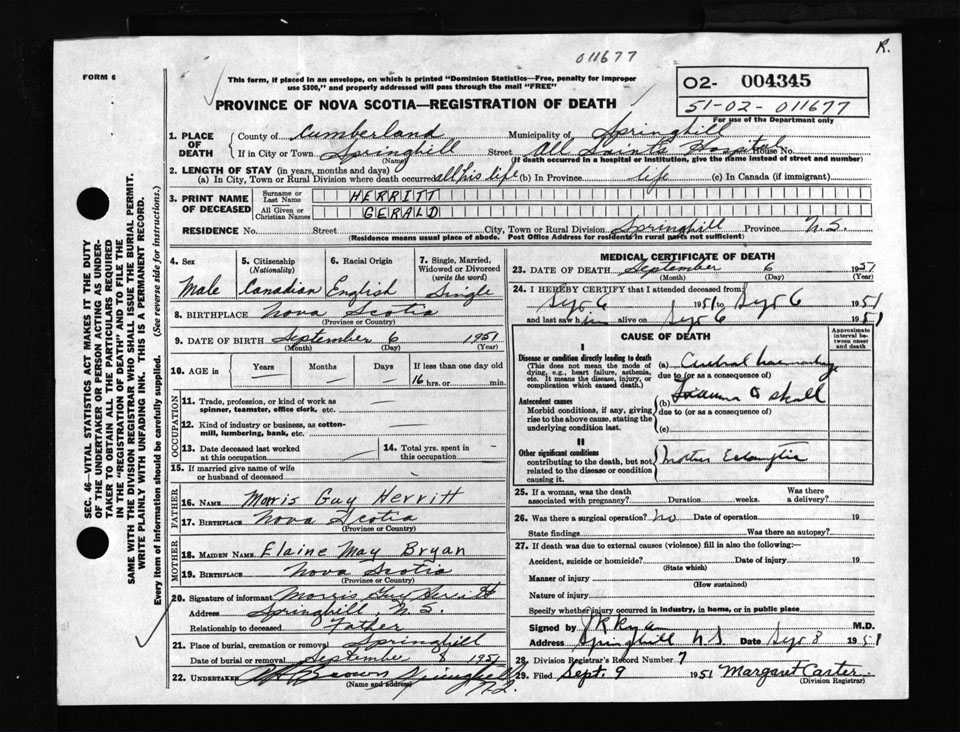 R.
011677
FORM 6
This form, if placed in an envelope, on which is printed "Dominion Statistics—Free, penalty for improper
use $300," and properly addressed will pass through the mail "FREE"
02- 004345
51-02-011677
For use of the Department only
PROVINCE OF NOVA SCOTIA—REGISTRATION OF DEATH
1. PLACE OF DEATH
County of Cumberland Municipality of Springhill
If in City or Town Springhill Street All Saints Hospital House No.
(Name) (If death occurred in a hospital or institution, give the name instead of street and number)
2. LENGTH OF STAY (in years, months and days)
(a) In City, Town or Rural Division where death occurred all his life (b) In Province life (c) In Canada (if immigrant)
3. PRINT NAME OF DECEASED
Surname or Last Name HERRITT
All Given or Christian Names GERALD
RESIDENCE No. Street City, Town or Rural Division Springhill Province N.S.
(Residence means usual place of abode. Post Office Address for residents in rural parts not sufficient)
4. Sex Male
5. Citizenship (Nationality) Canadian
6. Racial Origin English
7. Single, Married, Widowed or Divorced (write the word) Single
8. BIRTHPLACE Nova Scotia
(Province or Country)
9. DATE OF BIRTH September 6 1951
(Month) (Day) (Year)
10. AGE in Years Months Days If less than one day old
16 hrs. or min.
OCCUPATION
11. Trade, profession, or kind of work as
spinner, teamster, office clerk, etc.
12. Kind of industry or business, as cotton-
mill, lumbering, bank, etc.
13. Date deceased last worked
at this occupation
14. Total yrs. spent in
this occupation
15. If married give name of wife
or husband of deceased
FATHER
16. NAME Morris Guy Herritt
17. BIRTHPLACE Nova Scotia
(Province or Country)
MOTHER
18. MAIDEN NAME Elaine May Bryan
19. BIRTHPLACE Nova Scotia
(Province or Country)
20. Signature of informant Morris Guy Herritt
Address Springhill, N.S.
Relationship to deceased Father
21. Place of burial, cremation or removal Springhill
Date of burial or removal September 8 1951
22. UNDERTAKER Brown Springhill
(Name and address) N.S.
MEDICAL CERTIFICATE OF DEATH
23. DATE OF DEATH September 6 1951
(Month) (Day) (Year)
24. I HEREBY CERTIFY that I attended deceased from
Sept 6 1951 to Sept 6 1951
and last saw him alive on Sept 6 1951
CAUSE OF DEATH
Approximate interval between onset and death
I
Disease or condition directly leading to death
(This does not mean the mode of
dying, e.g., heart failure, asthenia,
etc. It means the disease, injury, or
complication which caused death.)
(a) Cerebral haemorrhage
due to (or as a consequence of)
Antecedent causes
Morbid conditions, if any, giving
rise to the above cause, stating the
underlying condition last.
(b) Trauma o skull
due to (or as a consequence of)
(c)
II
Other significant conditions
contributing to the death, but not
related to the disease or condition
causing it.
Mother Eclamptic
25. If a woman, was the death
associated with pregnancy? Duration weeks. Was there
a delivery?
26. Was there a surgical operation? no Date of operation 19
State findings Was there an autopsy?
27. If death was due to external causes (violence) fill in also the following:—
Accident, suicide or homicide? Date of injury 19
(State which)
Manner of injury
(How sustained)
Nature of injury
Specify whether injury occurred in industry, in home, or in public place
Signed by Ryan M.D.
Address Springhill N.S. Date Sept 8 1951
28. Division Registrar's Record Number 7
29. Filed Sept. 9 1951 Margaret Carter
(Division Registrar)
SEC. 46—VITAL STATISTICS ACT MAKES IT THE DUTY
OF THE UNDERTAKER OR PERSON ACTING AS UNDER-
TAKER TO OBTAIN ALL THE PARTICULARS REQUIRED
IN THE "REGISTRATION OF DEATH" AND TO FILE THE
SAME WITH THE DIVISION REGISTRAR WHO SHALL ISSUE THE BURIAL PERMIT.
WRITE PLAINLY WITH UNFADING INK. THIS IS A PERMANENT RECORD.
Every item of information should be carefully supplied. (See reverse side for instructions.)